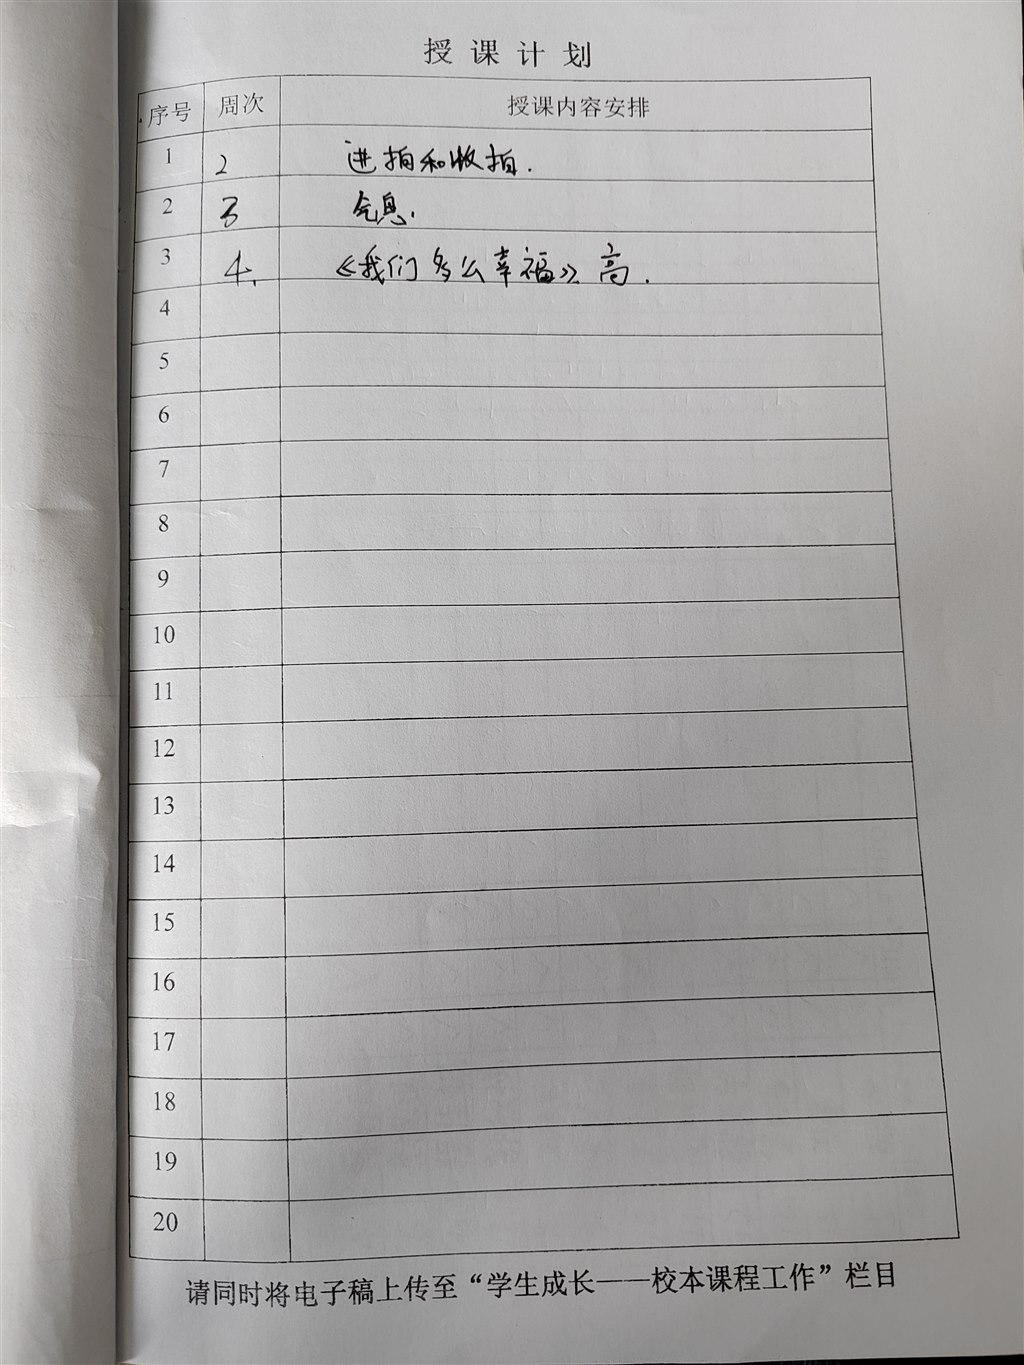 授课计划
序号 周次 授课内容安排
1 2 进拍和收拍.
2 3 气息.
3 4. 《我们多么幸福》高.
4
5
6
7
8
9
10
11
12
13
14
15
16
17
18
19
20
请同时将电子稿上传至“学生成长——校本课程工作”栏目